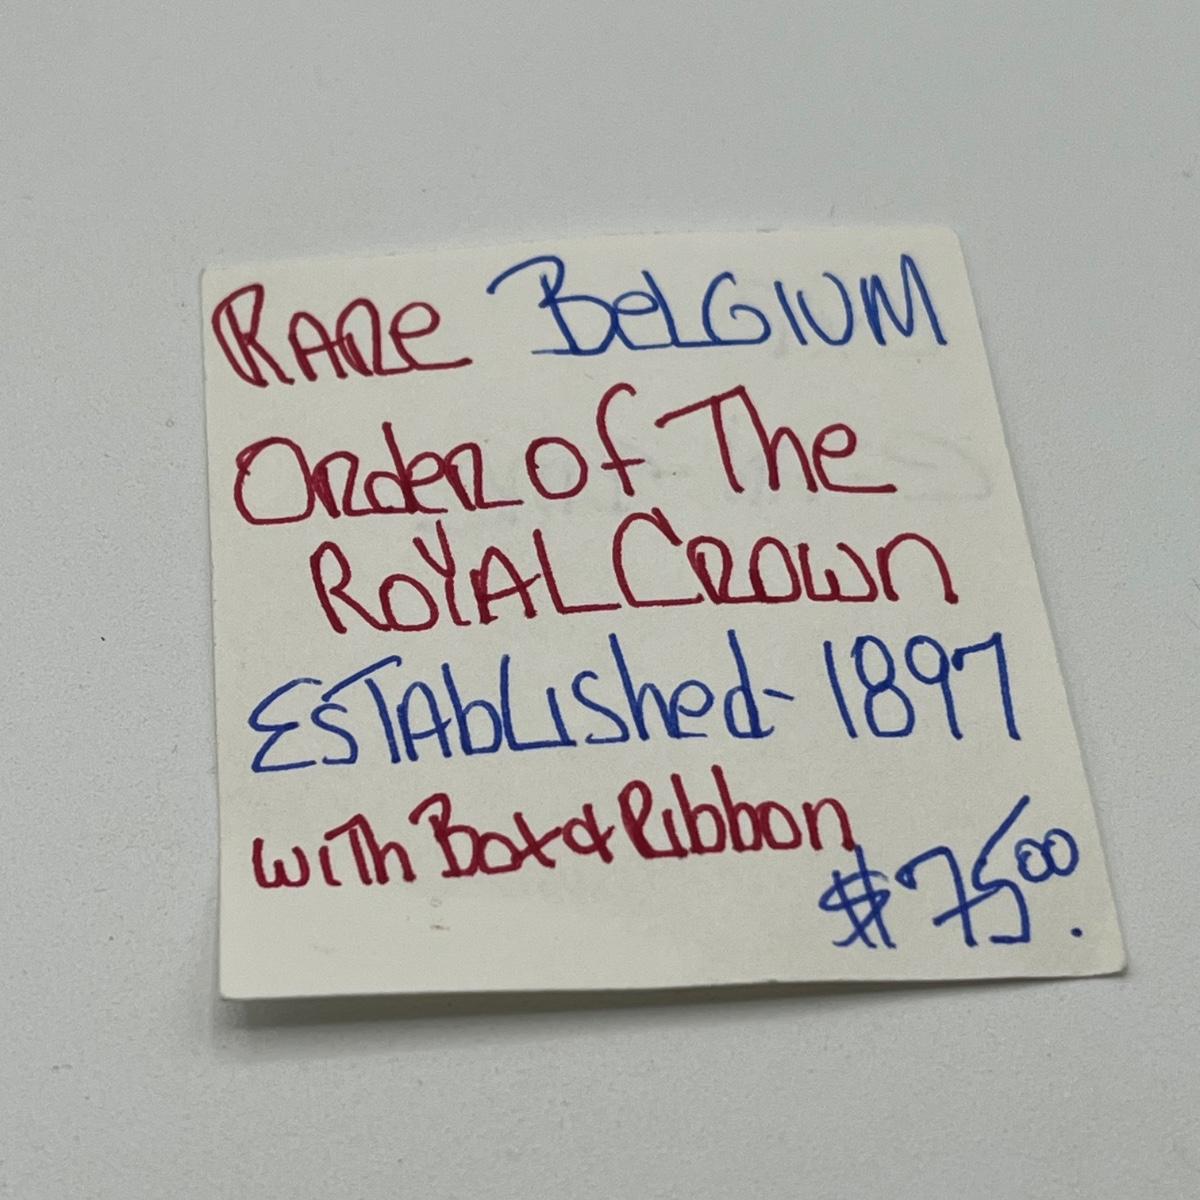 RARe BelGIUM
Order of The
ROYAL CROWN
ESTAblIShed- 1897
wiTh Box & Ribbon
$75.00